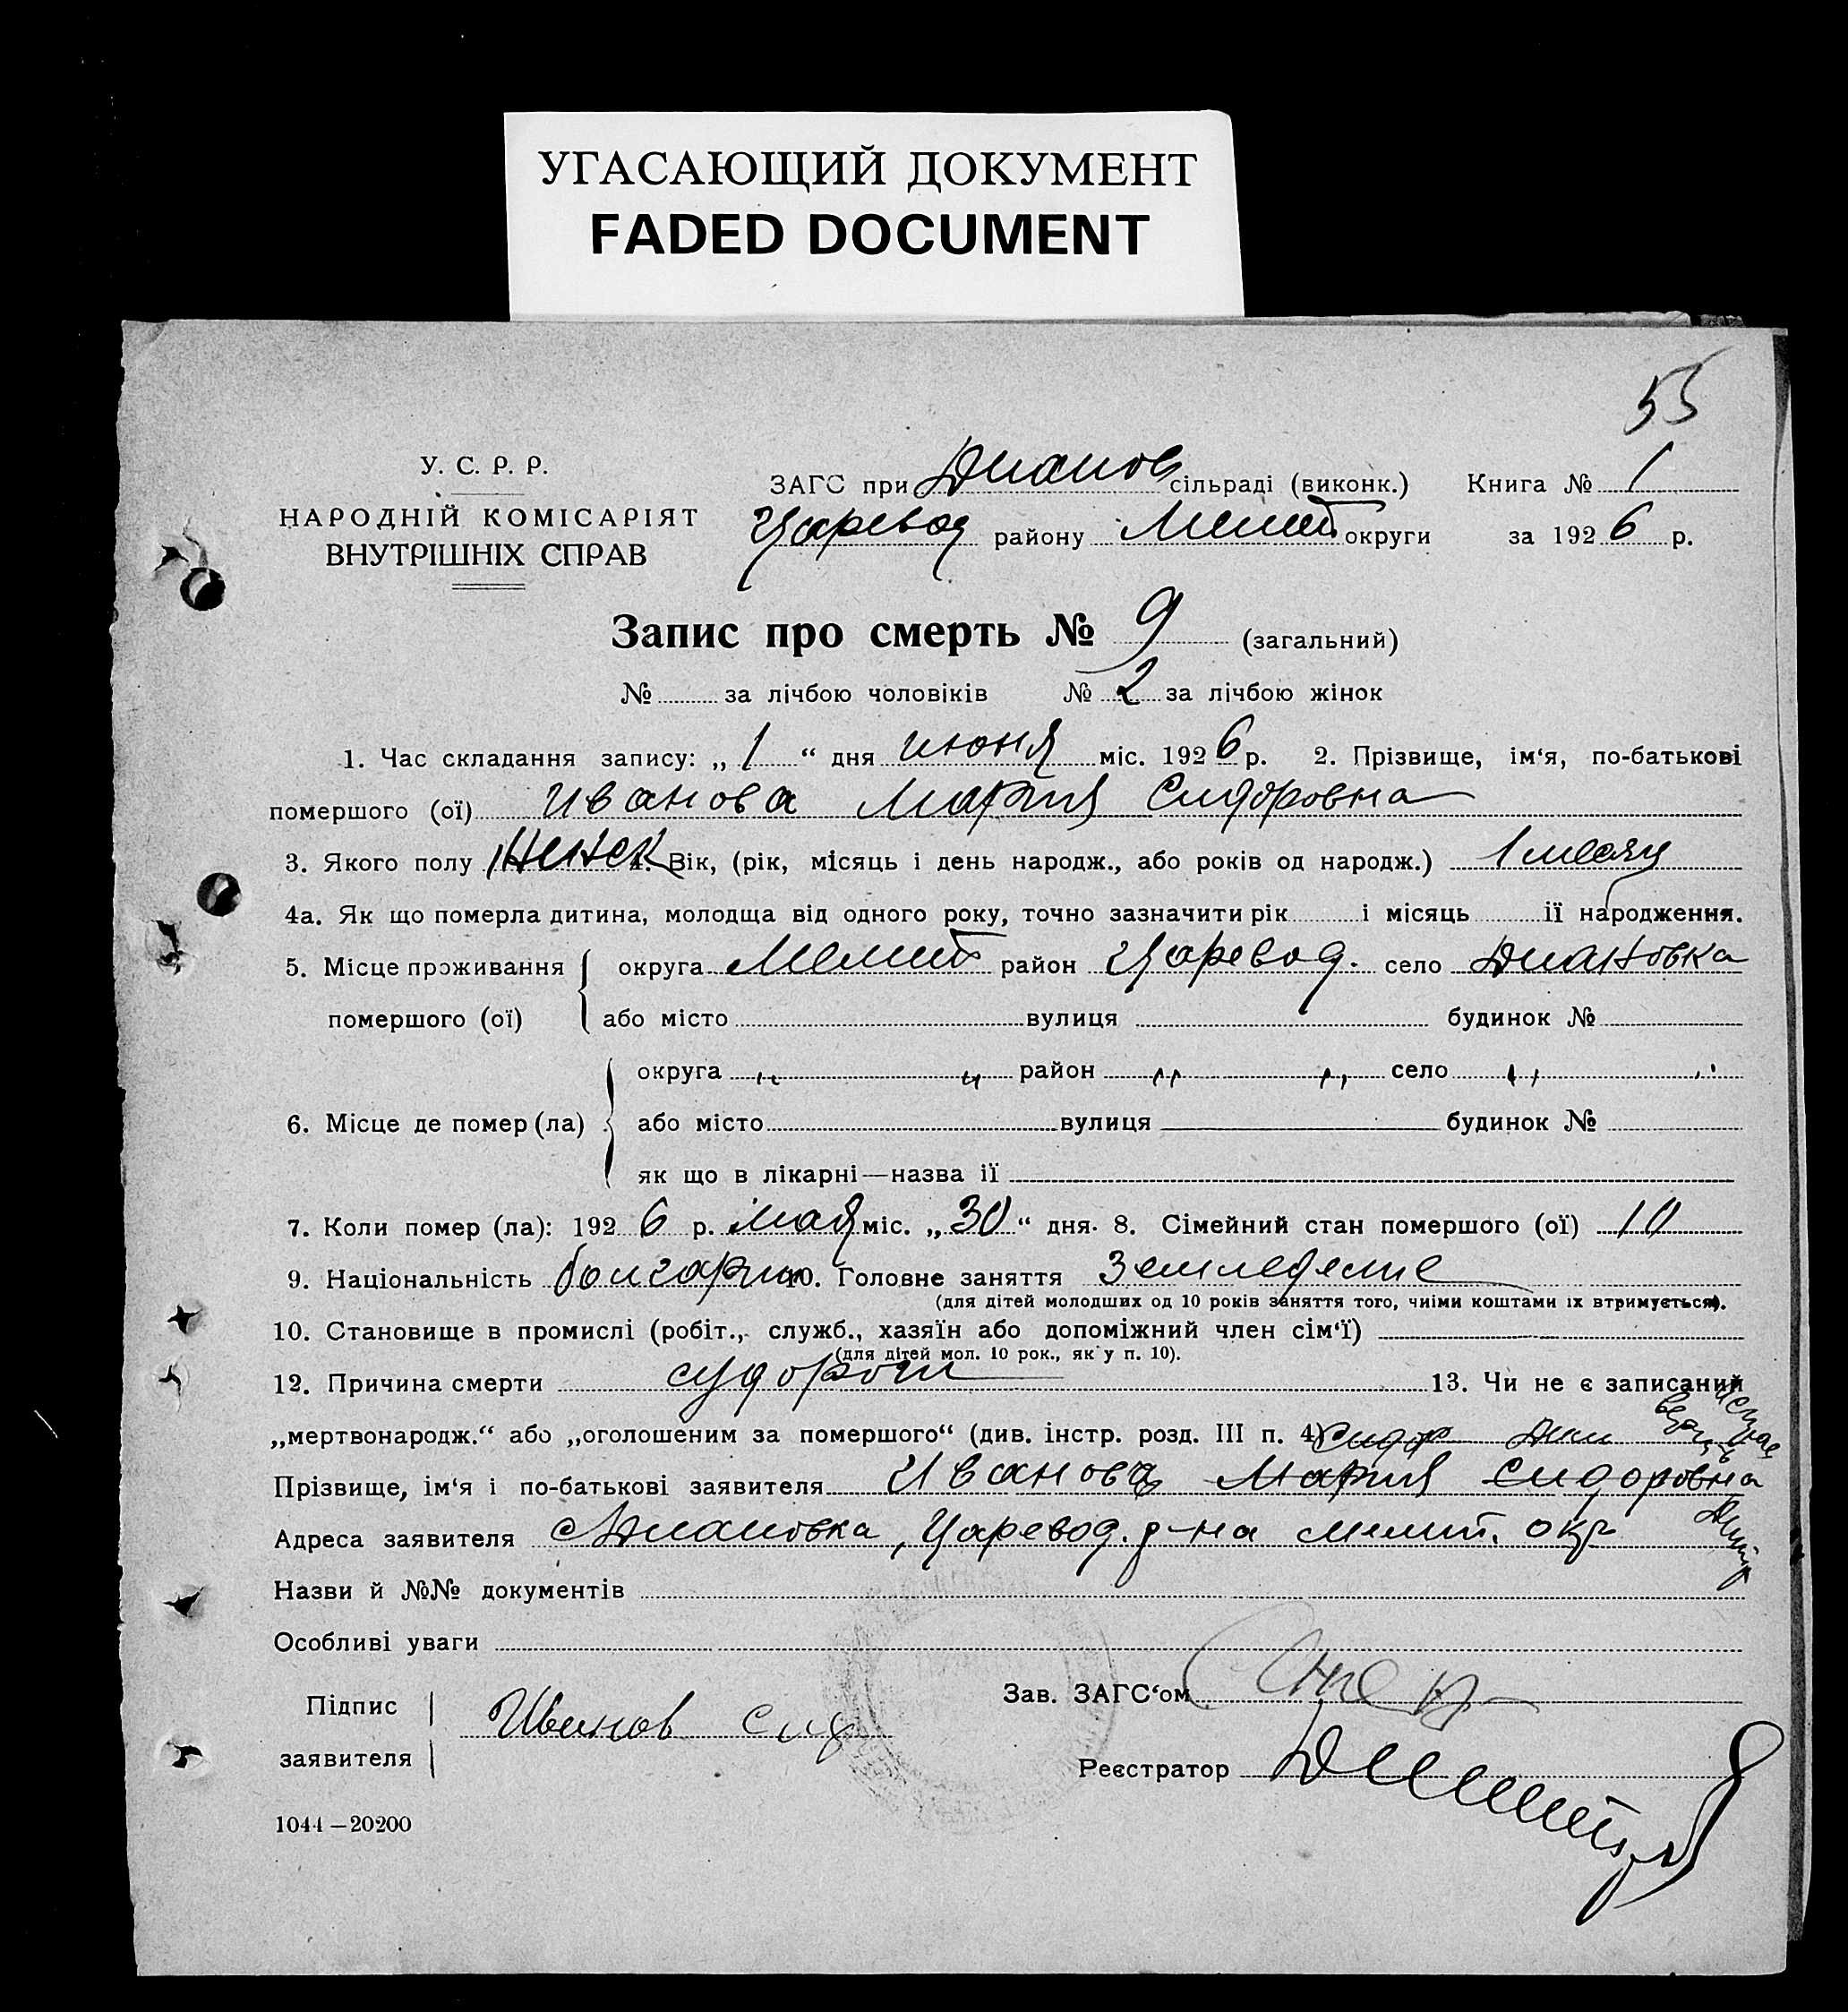 УГАСАЮЩИЙ ДОКУМЕНТ
FADED DOCUMENT
55
У. С. Р. Р.
НАРОДНІЙ КОМІСАРІЯТ
ВНУТРІШНІХ СПРАВ
ЗАГС при Дианов сільраді (виконк.) Книга № 1
Царевод району Мелит округи за 1926 р.
Запис про смерть № 9 (загальний)
№ за лічбою чоловіків № 2 за лічбою жінок
1. Час складання запису: „ 1 “ дня июня міс. 1926 р. 2. Прізвище, ім‘я, по-батькові
помершого (ої) Иванова Мария Сидоровна
3. Якого полу Женск 4. Вік, (рік, місяць і день народж., або років од народж.) 1 месяц
4а. Як що померла дитина, молодща від одного року, точно зазначити рік і місяць її народження.
5. Місце проживання помершого (ої) округа Мелит район Царевод. село Диановка
або місто вулиця будинок №
6. Місце де помер (ла) округа „ „ район „ „ село „ „
або місто вулиця будинок №
як що в лікарні—назва її
7. Коли помер (ла): 1926 р. мая міс. „30“ дня. 8. Сімейний стан помершого (ої) 10
9. Національність болгарин 10. Головне заняття Земледелие
(для дітей молодших од 10 років заняття того, чиїми коштами їх втримується).
10. Становище в промислі (робіт., служб., хазяїн або допоміжний член сім‘ї)
(для дітей мол. 10 рок., як у п. 10).
12. Причина смерти судороги 13. Чи не є записаний
„мертвонародж.“ або „оголошеним за помершого“ (див. інстр. розд. III п. 4) Сидор
Прізвище, ім‘я і по-батькові заявителя Иванова Мария Сидоровна
Адреса заявителя с Диановка, Царевод. р-на Мелит. окр
Назви й №№ документів
Особливі уваги
Підпис заявителя Иванов Сид
Зав. ЗАГС‘ом
Реєстратор
1044—20200